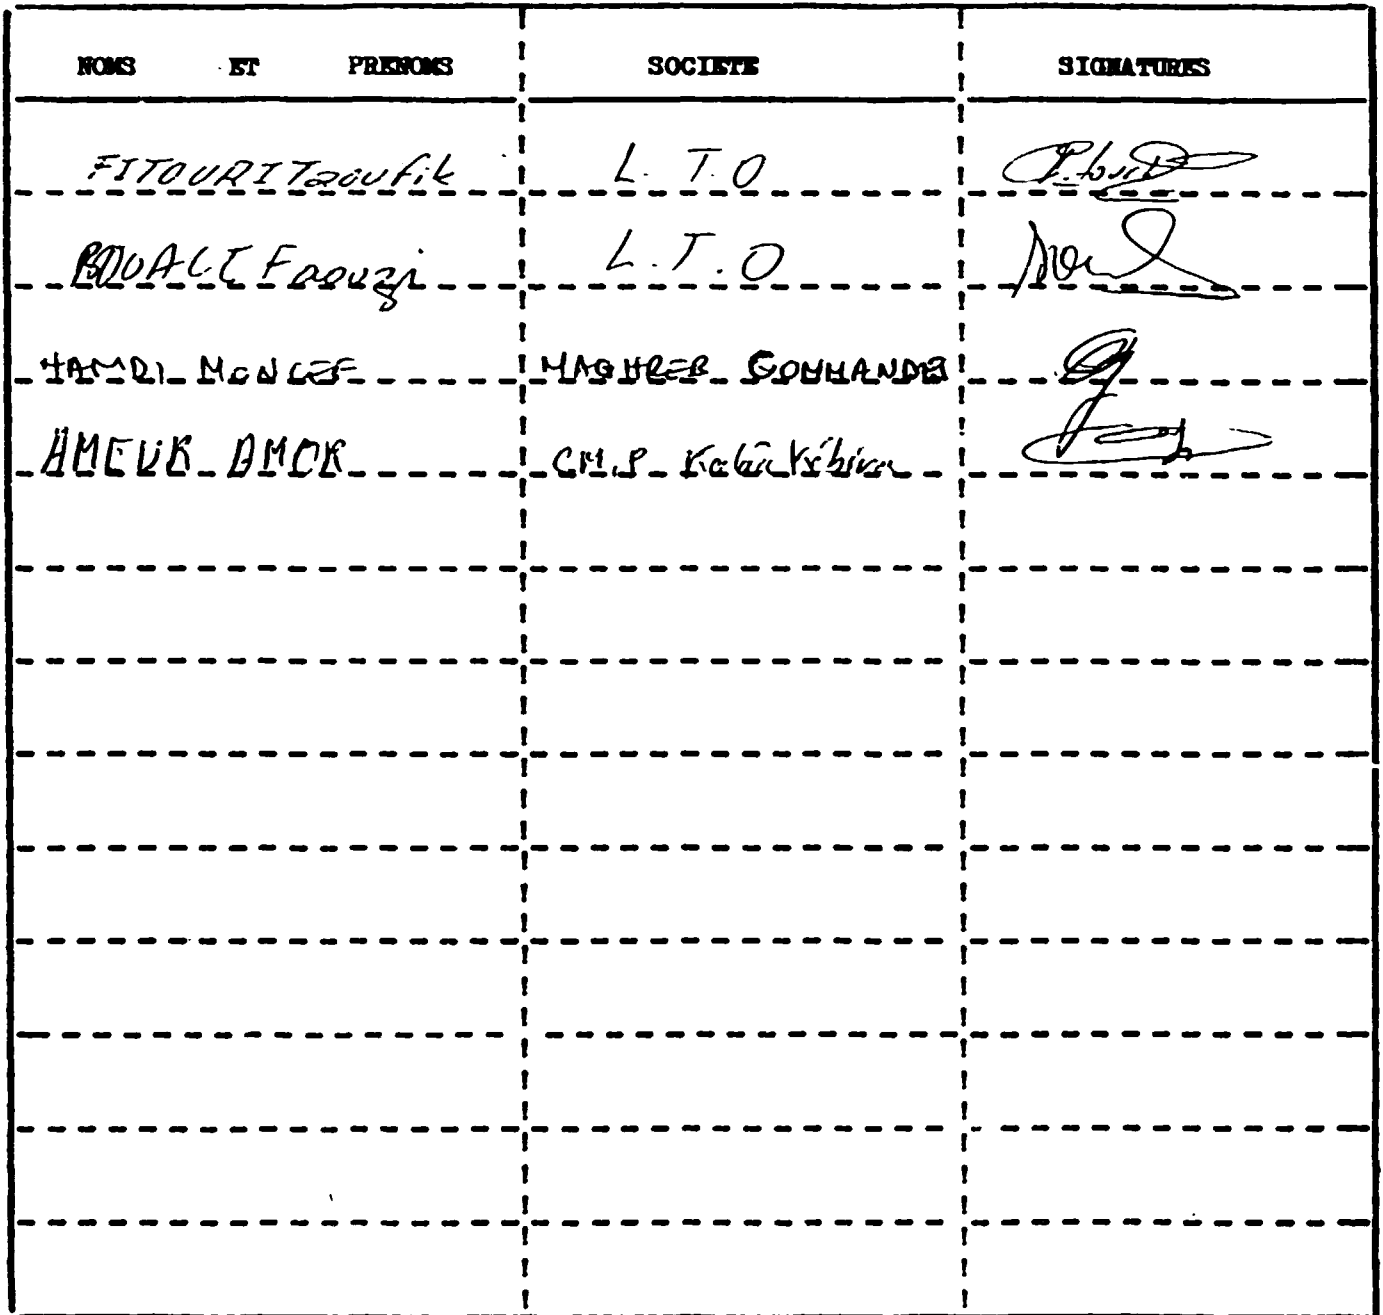 NOMS ET PRENOMS SOCIETE SIGNATURES
FITOURI Taoufik L. T. O
BOUALI Faouzi L. T. O
HAMDI MONCEF MAGHREB COMMANDES
AMEUR AMOR C.M.P Kalâa Kébira